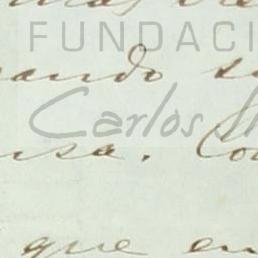 FUNDACI
ando s
Carlos Sl
usa. Co
que en